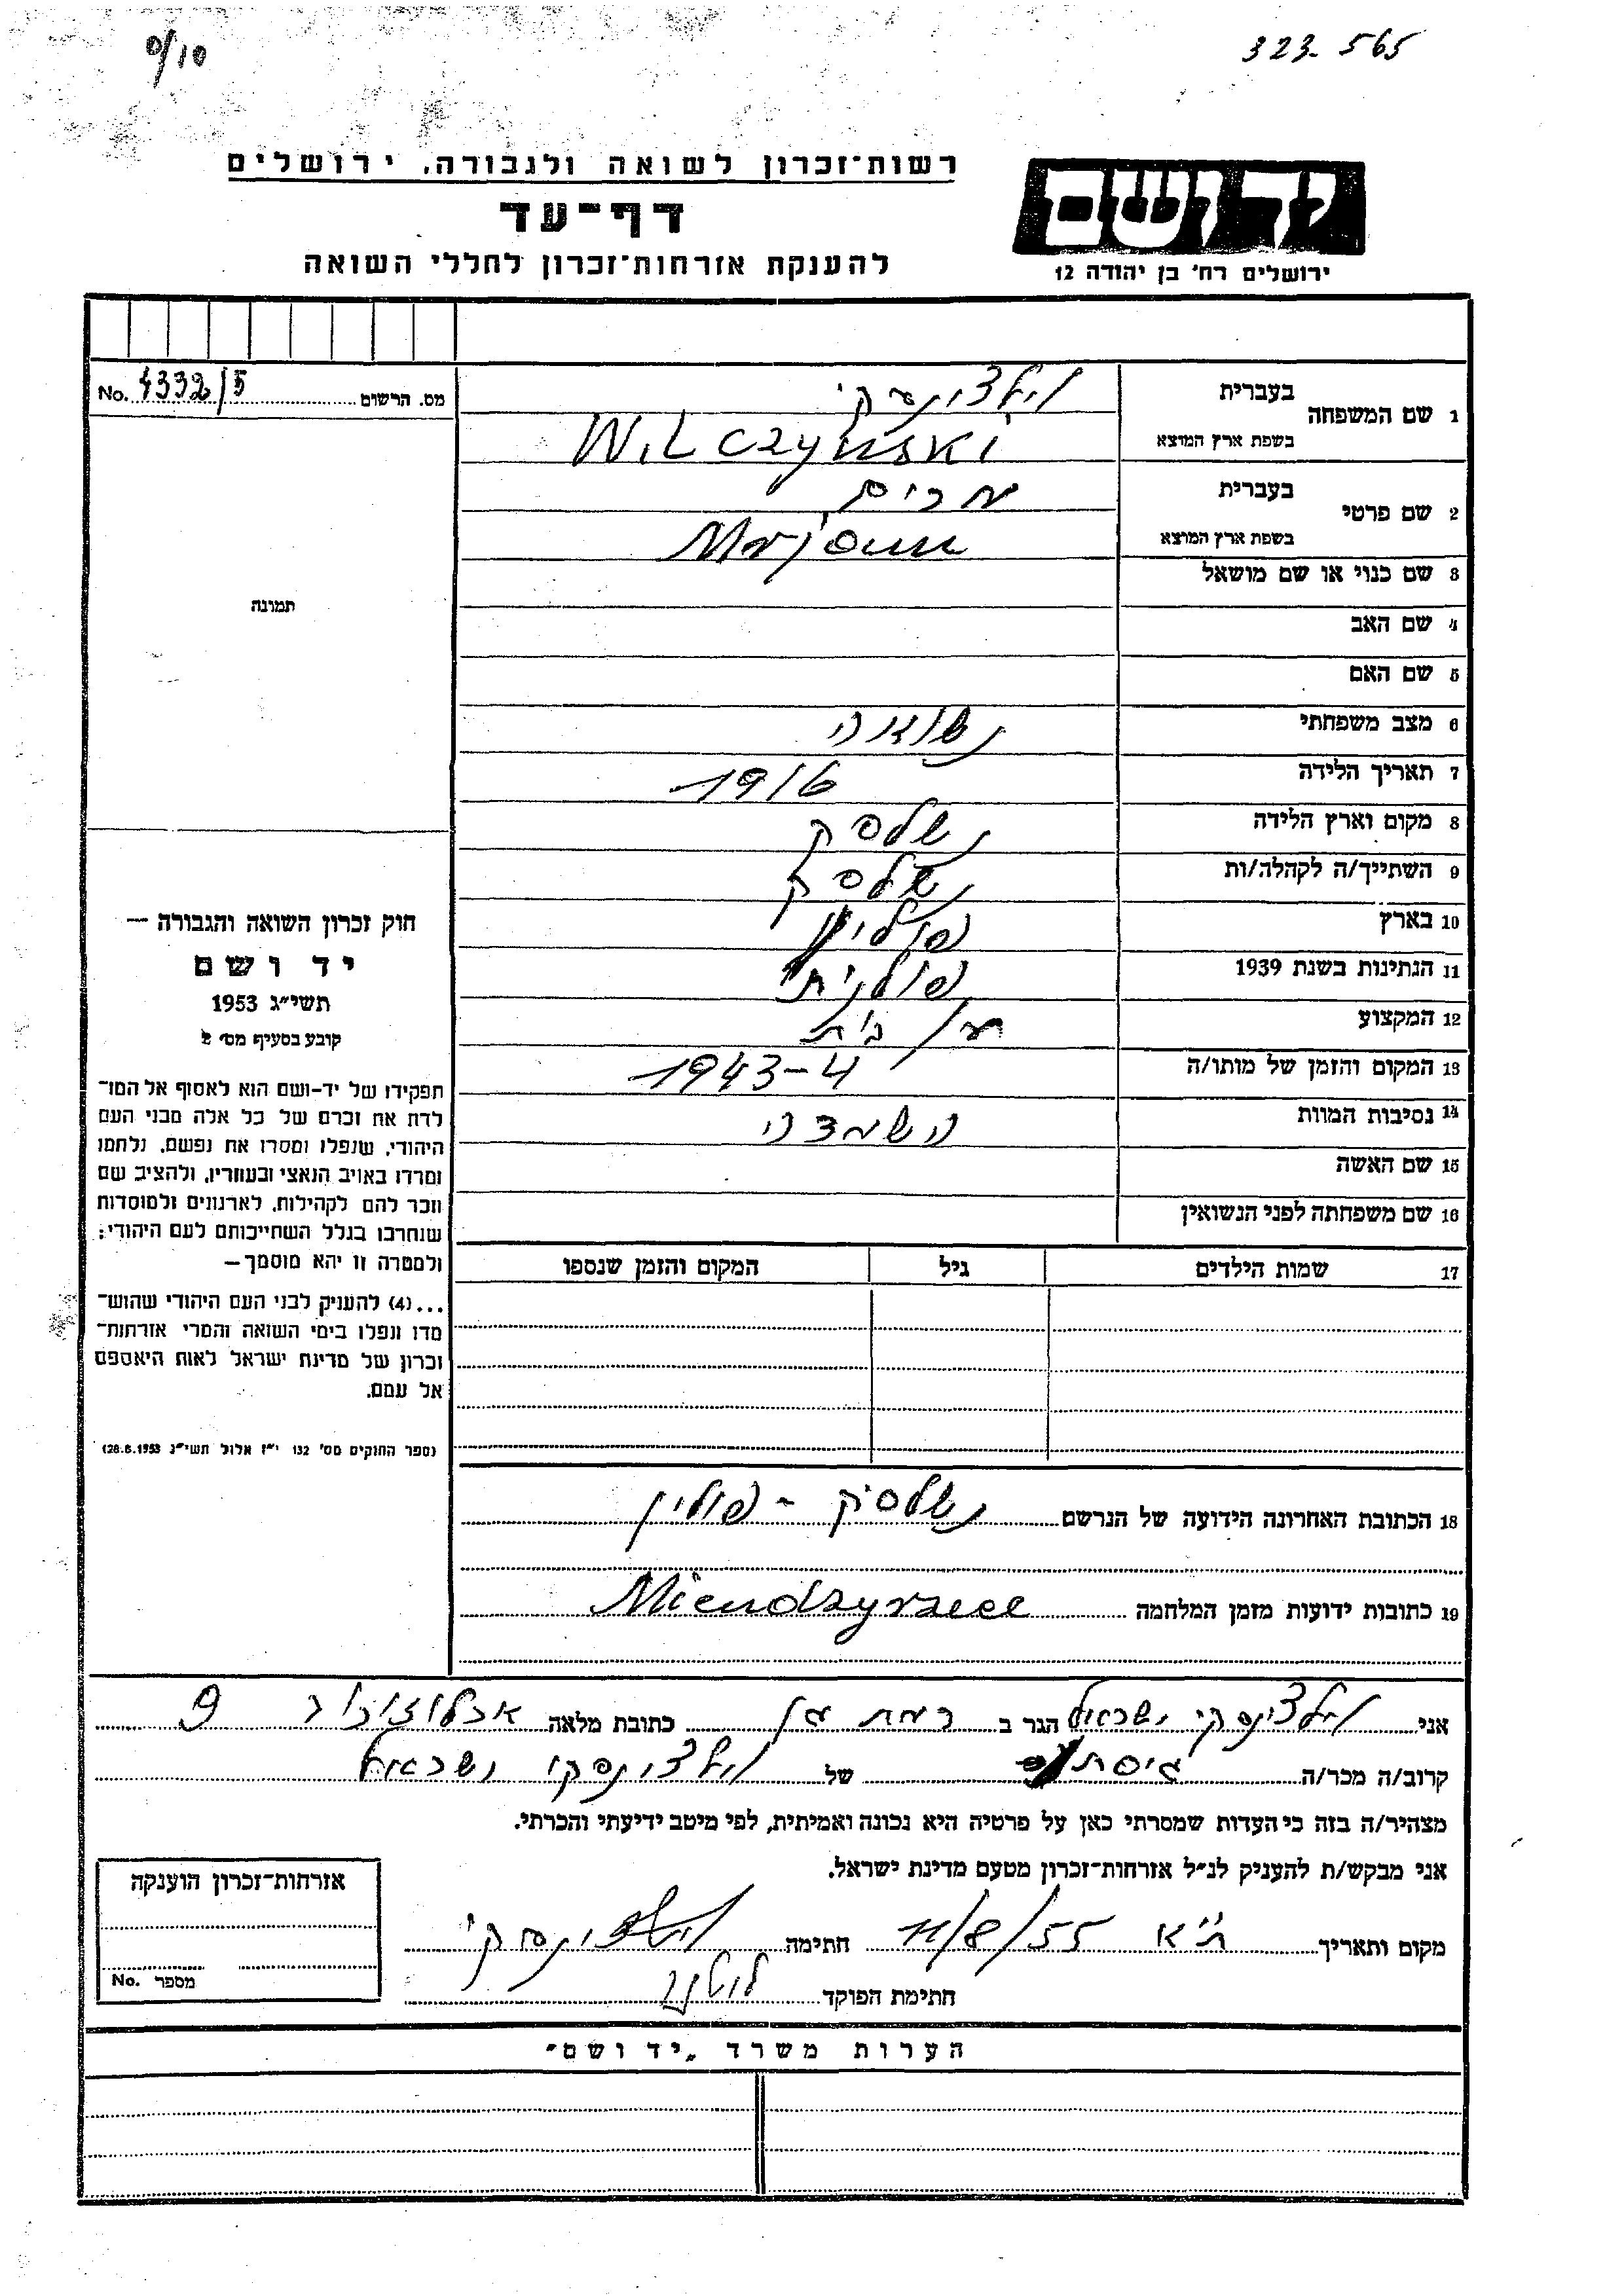 0/10
323.565
רשות־זכרון לשואה ולגבורה. ירושלים
דף־עד
להענקת אזרחות־זכרון לחללי השואה
יד ושם
ירושלים רח' בן יהודה 12
No. 4332/5 מס. הרשום
1 שם המשפחה
בעברית וילצ'ינסקי
בשפת ארץ המוצא Wilczyński
2 שם פרטי
בעברית מרים
בשפת ארץ המוצא
3 שם כנוי או שם מושאל
4 שם האב
5 שם האם
6 מצב משפחתי נשואה
7 תאריך הלידה 1916
8 מקום וארץ הלידה נשלסק
9 השתייך/ה לקהלה/ות נשלסק
10 בארץ פולין
11 הנתינות בשנת 1939 פולנית
12 המקצוע
13 המקום והזמן של מותו/ה 1943-4
14 נסיבות המוות השמדה
15 שם האשה
16 שם משפחתה לפני הנשואין
17 שמות הילדים גיל המקום והזמן שנספו
18 הכתובת האחרונה הידועה של הנרשם נשלסיק - פולין
19 כתובות ידועות מזמן המלחמה
תמונה
חוק זכרון השואה והגבורה —
יד ושם
תשי״ג 1953
קובע בסעיף מס׳ 2
תפקידו של יד-ושם הוא לאסוף אל המו־
לדת את זכרם של כל אלה מבני העם
היהודי, שנפלו ומסרו את נפשם, נלחמו
ומרדו באויב הנאצי ובעוזריו, ולהציב שם
וזכר להם לקהילות, לארגונים ולמוסדות
שנחרבו בגלל השתייכותם לעם היהודי;
ולמטרה זו יהא מוסמך —
...(4) להעניק לבני העם היהודי שהוש־
מדו ונפלו בימי השואה והמרי אזרחות־
זכרון של מדינת ישראל לאות היאספם
אל עמם.
(ספר החוקים מס׳ 132 י״ז אלול תשי״ג 28.8.1953)
אני וילצ'ינסקי ישראל הגר ב רמת גן כתובת מלאה ארלוזורוב 9
קרוב/ה מכר/ה גיסת של וילצ'ינסקי ישראל
מצהיר/ה בזה כי העדות שמסרתי כאן על פרטיה היא נכונה ואמיתית, לפי מיטב ידיעתי והכרתי.
אני מבקש/ת להעניק לנ״ל אזרחות־זכרון מטעם מדינת ישראל.
מקום ותאריך ת״א 11/8/55 חתימה וילצ'ינסקי
חתימת הפוקד
אזרחות־זכרון הוענקה
מספר No.
הערות משרד „יד ושם״